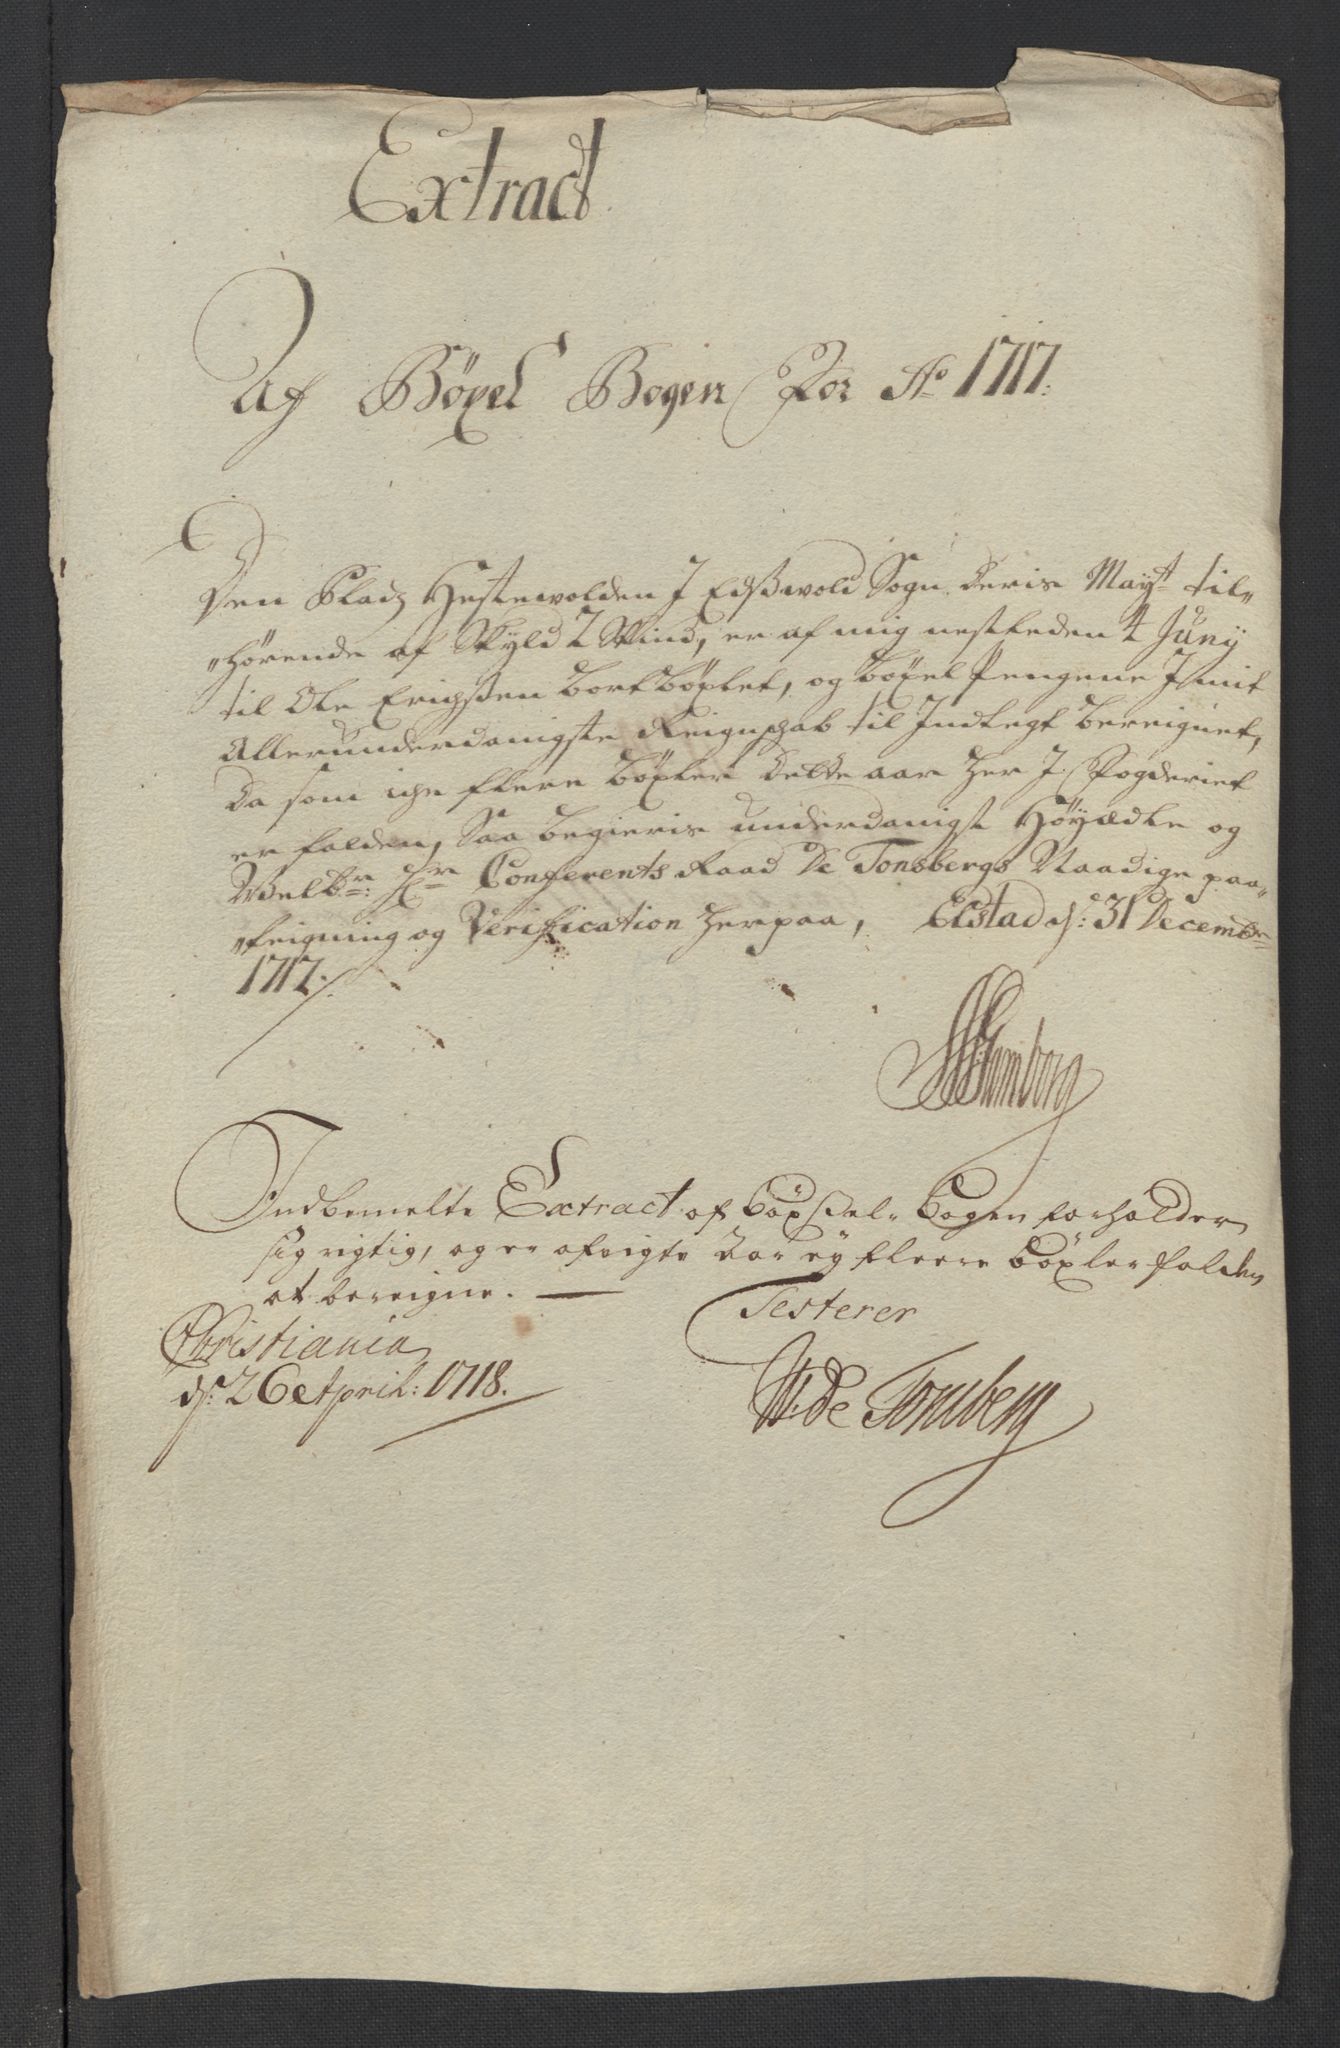 Extract
Af Böxel Bogen For Ao 1717.
Den Pladz Hestevolden I Edsßvold Sogn Deris Mayt til„
„hörende af Skyld 2 Skind, er af mig nestleden 4 Juny
til Ole Erichßen bortböxlet, og böxel Pengene I mit
Allerunderdanigste Reignskab til Indtegt bereignet,
Da som iche flere böxler dette aar her I Fogderiet
er falden, Saa begieris underdanigst Höÿædle og
Welbr: Hr Conferents Raad De Tonsbergs Naadige paa„
„teigning og Verification herpaa, Elstad d: 31 Decembr
1717.
Indbemelte Extract af böxßel„ bogen forholder
sig rigtig, og er afvigte Aar ey fleere böxler falden
at bereigne. —
Testerer
Christiania
d: 26 April: 1718.
W: De Tonsberg